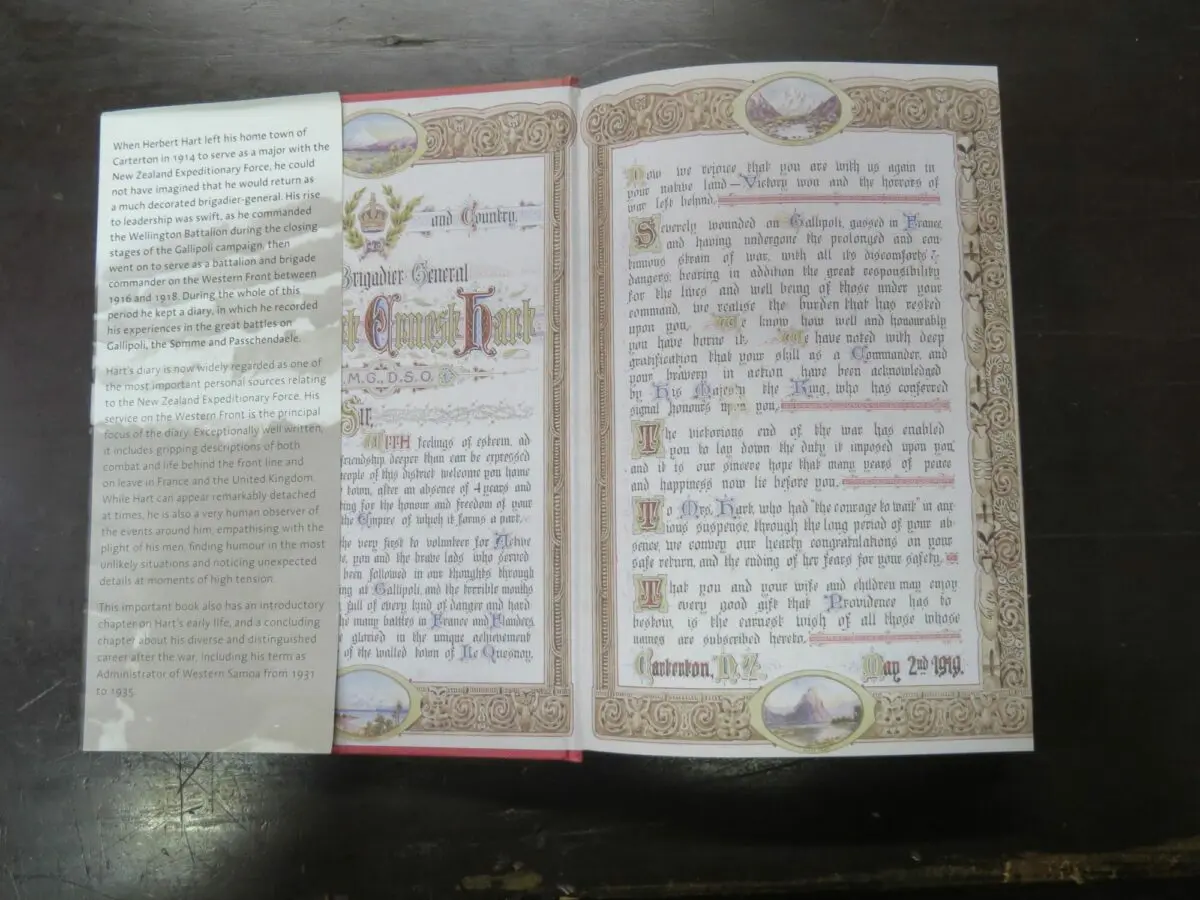 When Herbert Hart left his home town of
Carterton in 1914 to serve as a major with the
New Zealand Expeditionary Force, he could
not have imagined that he would return as
a much decorated brigadier-general. His rise
to leadership was swift, as he commanded
the Wellington Battalion during the closing
stages of the Gallipoli campaign, then
went on to serve as a battalion and brigade
commander on the Western Front between
1916 and 1918. During the whole of this
period he kept a diary, in which he recorded
his experiences in the great battles on
Gallipoli, the Somme and Passchendaele.
Hart's diary is now widely regarded as one of
the most important personal sources relating
to the New Zealand Expeditionary Force. His
service on the Western Front is the principal
focus of the diary. Exceptionally well written,
it includes gripping descriptions of both
combat and life behind the front line and
on leave in France and the United Kingdom.
While Hart can appear remarkably detached
at times, he is also a very human observer of
the events around him, empathising with the
plight of his men, finding humour in the most
unlikely situations and noticing unexpected
details at moments of high tension.
This important book also has an introductory
chapter on Hart's early life, and a concluding
chapter about his diverse and distinguished
career after the war, including his term as
Administrator of Western Samoa from 1931
to 1935.
and Country.
Brigadier General
Ernest Hart
M.G., D.S.O.
Sir,
With feelings of esteem, ad
friendship deeper than can be expressed
people of this district welcome you home
town, after an absence of 4 years and
ting for the honour and freedom of your
the Empire of which it forms a part.
the very first to volunteer for Active
e, you and the brave lads who served
been followed in our thoughts through
ng at Gallipoli, and the terrible months
full of every kind of danger and hard
he many battles in France and Flanders,
gloried in the unique achievement
of the walled town of Le Quesnoy.
Now we rejoice that you are with us again in
your native land—Victory won and the horrors of
war left behind.
Severely wounded on Gallipoli, gassed in France
and having undergone the prolonged and con
tinuous strain of war, with all its discomforts &
dangers: bearing in addition the great responsibility
for the lives and well being of those under your
command, we realise the burden that has rested
upon you. We know how well and honourably
you have borne it. We have noted with deep
gratification that your skill as a Commander, and
your bravery in action have been acknowledged
by His Majesty the King, who has conferred
signal honours upon you.
The victorious end of the war has enabled
you to lay down the duty it imposed upon you
and it is our sincere hope that many years of peace
and happiness now lie before you.
To Mrs. Hart, who had "the courage to wait" in anx
ious suspense through the long period of your ab
sence, we convey our hearty congratulations on your
safe return, and the ending of her fears for your safety.
That you and your wife and children may enjoy
every good gift that Providence has to
bestow, is the earnest wish of all those whose
names are subscribed hereto.
Carterton, N.Z. May 2nd 1919.